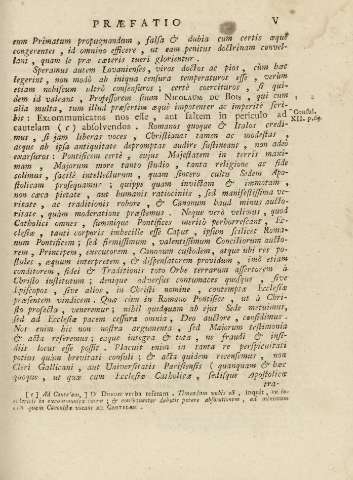 PRÆFATIO V
eum Primatum propugnandum, falsa & dubia cum certis æque
congerentes, id omnino efficere, ut eam penitus doctrinam convel-
lant, quam se præ cæteris tueri glorientur.
Speramus autem Lovanienses, viros doctos ac pios, cùm hæc
legerint, non modò ab iniqua censura temperaturos esse, verùm
etiam nobiscum ultrò consensuros; certè coercituros, si qui-
dem id valeant, Professorem suum NICOLAUM DU BOIS, qui cùm
alia multa, tum illud præsertim æquè impotenter ac imperitè scri-
bit: Excommunicatos nos esse, aut saltem in periculo ad
cautelam (c) absolvendos. Romanos quoque & Italos credi-
mus, si jam liberas voces, Christianas tamen ac modestas,
atque ab ipsa antiquitate depromptas audire sustineant, non adeo
exarsuros: Pontificem certè, cujus Majestatem in terris maxi-
mam, Majorum more tanto studio, tanta religione ac fide
colimus, facilè intellecturum, quam sincero cultu Sedem Apo-
stolicam prosequamur; quippe quam invictam & immotam,
non cæca pietate, aut humanis ratiociniis, sed manifestissima ve-
ritate, ac traditionis robore, & Canonum haud minus aucto-
ritate, quàm moderatione præstemus. Neque verò velimus, quod
Catholici omnes, summique Pontifices meritò perhorrescant, Ec-
clesiæ, tanti corporis imbecille esse Caput, ipsum scilicet Roma-
num Pontificem; sed firmissimum, valentissimum Conciliorum aucto-
rem, Principem, executorem, Canonum custodem, atque ubi res po-
stulet, æquum interpretem, & dispensatorem providum, imò etiam
conditorem, fidei & Traditionis toto Orbe terrarum assertorem à
Christo institutum; denique adversus contumaces quosque, sive
Episcopos, sive alios, in Christi nomine, contemptæ Ecclesiæ
præsentem vindicem. Quæ cùm in Romano Pontifice, ut à Chri-
sto profecta, veneremur; nihil quidquam ab ejus Sede metuimus,
sed ad Ecclesiæ pacem cessura omnia, Deo auctore, confidimus.
Nos enim hic non nostra argumenta, sed Majorum testimonia
& acta referemus; eaque integra & tota, ut fraudi & insi-
diis locus esse possit. Placuit enim in tanta re perspicuitati
potiùs quàm brevitati consuli; & acta quidem recensemus, non
Cleri Gallicani, aut Universitatis Parisiensis (quanquam & hæc
quoque, ut quæ cum Ecclesiæ Catholicæ, sedisque Apostolicæ
tra-
1 2
Consul.
XII. p.69.